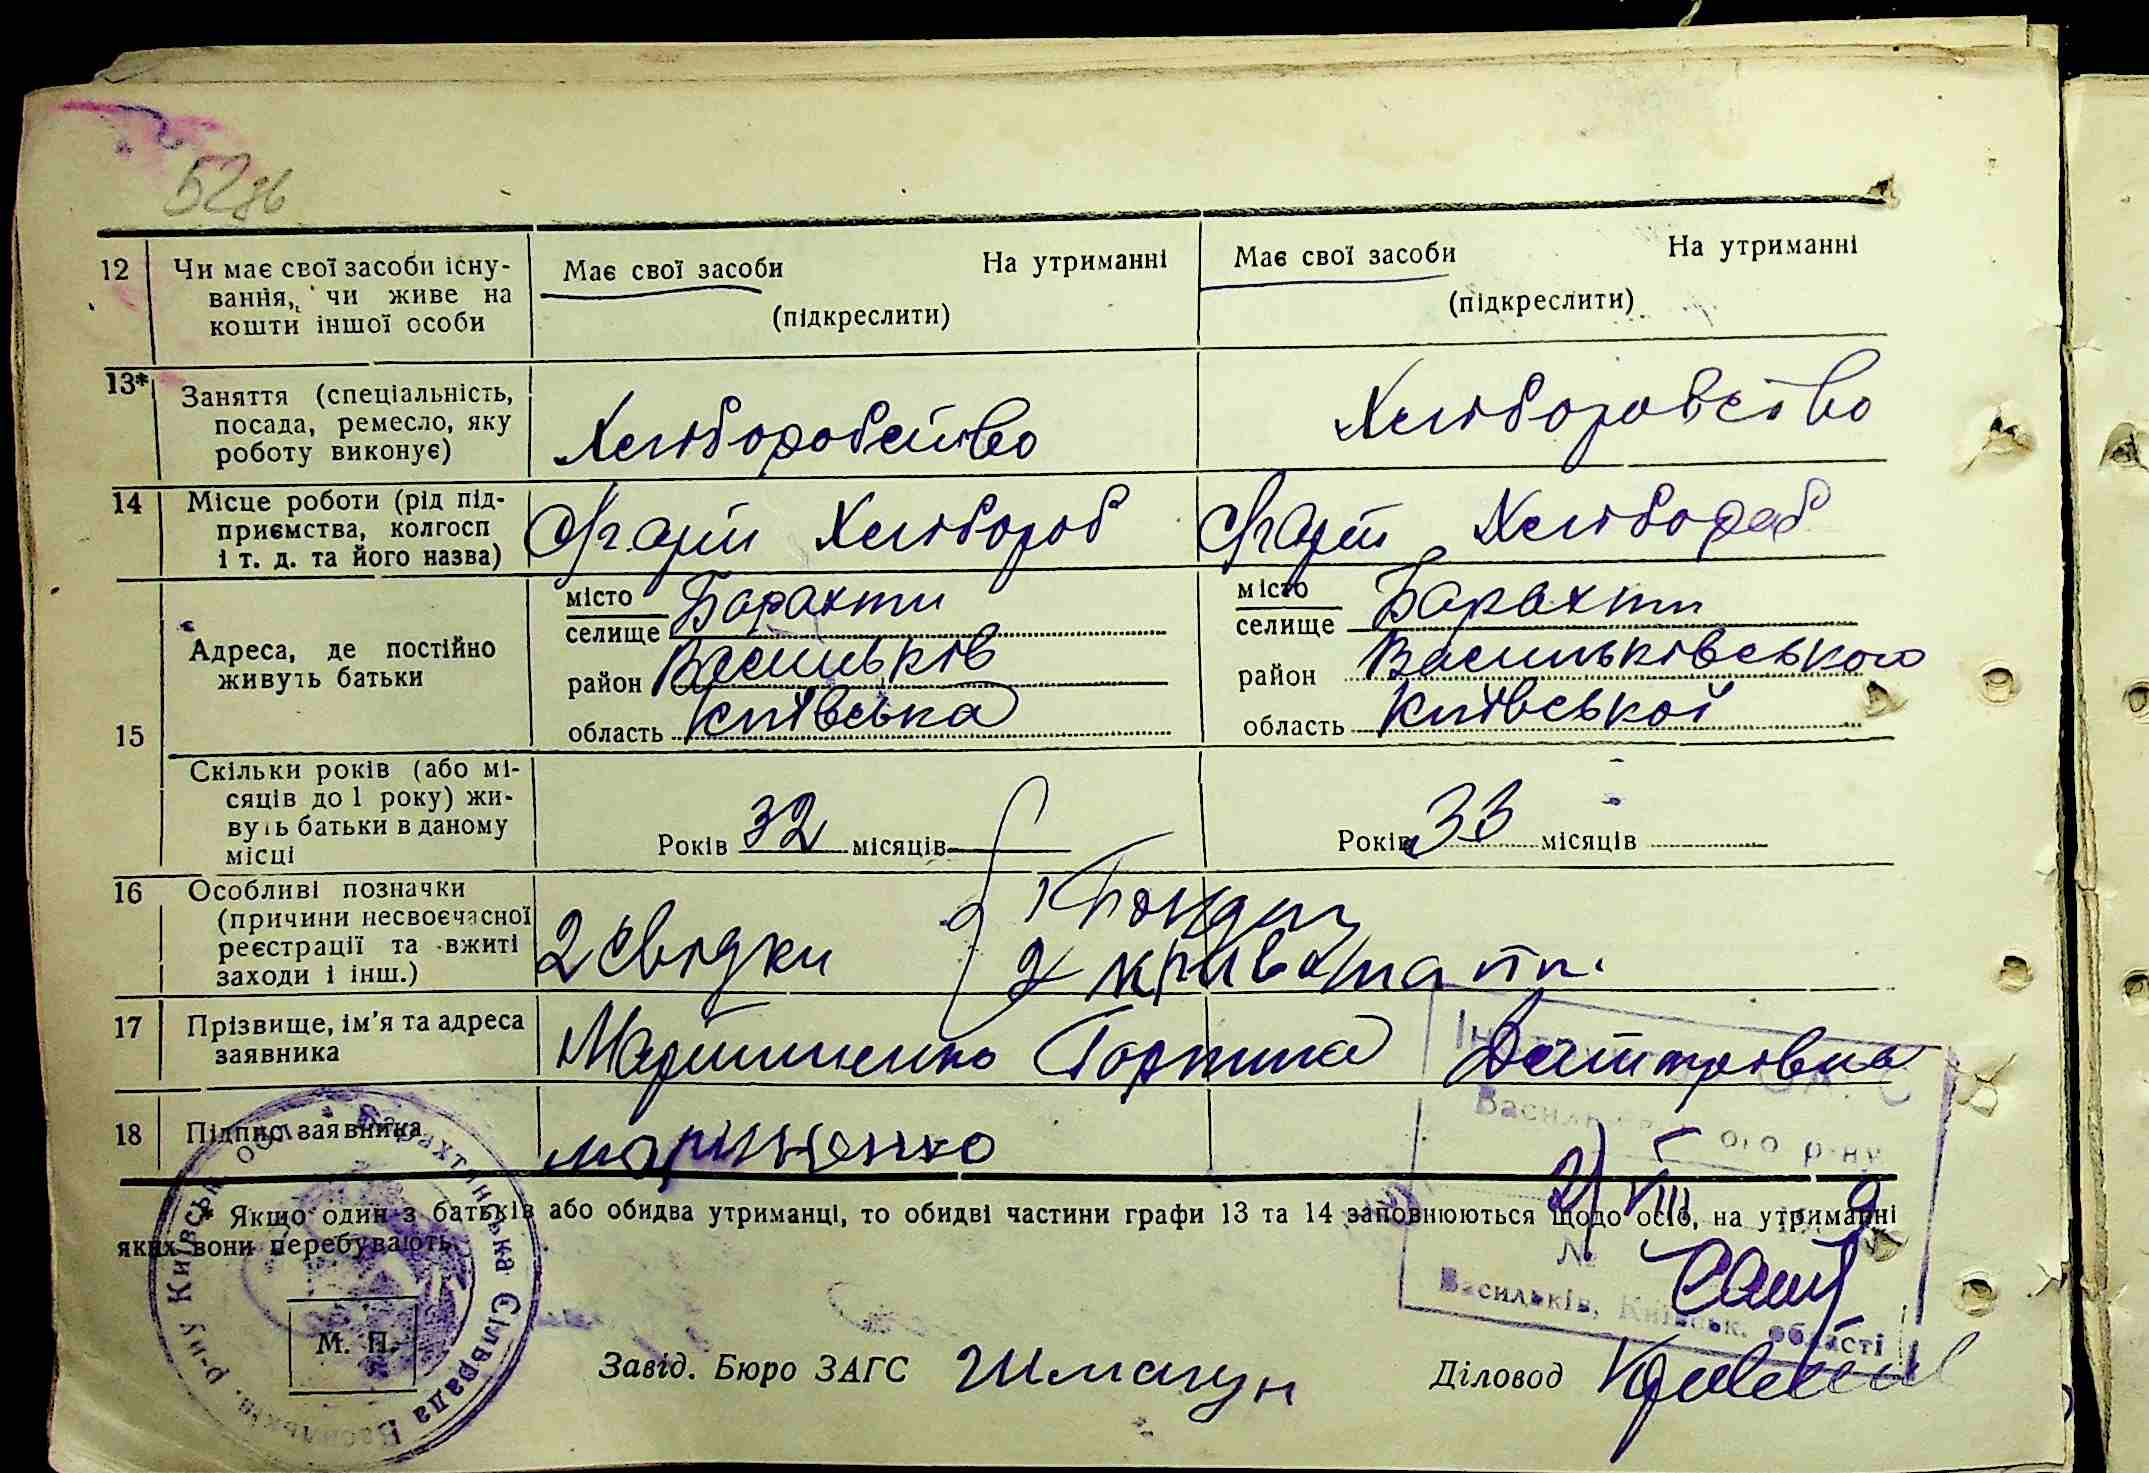 52зв
12 Чи має свої засоби існу-
вання, чи живе на
кошти іншої особи
Має свої засоби На утриманні
(підкреслити)
Має свої засоби На утриманні
(підкреслити)
13* Заняття (спеціальність,
посада, ремесло, яку
роботу виконує)
Хліборобство
Хліборобство
14 Місце роботи (рід під-
приємства, колгосп
і т. д. та його назва)
Хлібороб
Хлібороб
15 Адреса, де постійно
живуть батьки
місто
селище Барахти
район Васильків
область Київська
місто
селище Барахти
район Васильківського
область Київської
Скільки років (або мі-
сяців до 1 року) жи-
вуть батьки в даному
місці
Років 32 місяців —
Років 33 місяців
16 Особливі позначки
(причини несвоєчасної
реєстрації та вжиті
заходи і інш.)
2 свідки
17 Прізвище, ім'я та адреса
заявника
Мариненко Горпина Дмитровна
18 Підпис заявника
мариненко
* Якщо один з батьків або обидва утриманці, то обидві частини графи 13 та 14 заповнюються щодо осіб, на утриманні
яких вони перебувають.
М. П.
Барахтянська Сільрада Васильків. р-ну Київськ. обл.
VIII
№
Васильків, Київськ. області
Завід. Бюро ЗАГС Шмагун
Діловод